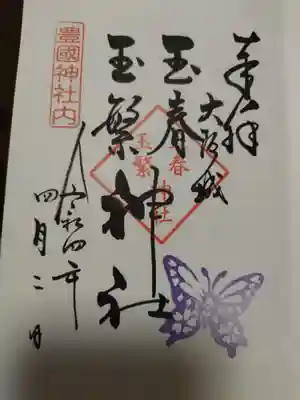 奉拝
大阪城
玉春
玉繁神社
春
玉繁神社
豊國神社内
令和四年
四月二日